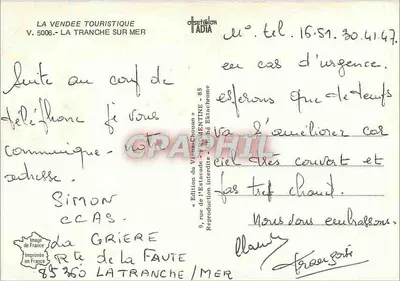 LA VENDEE TOURISTIQUE
V. 5006.- LA TRANCHE SUR MER
Suite au coup de
téléphone je vous
communique notre
adresse.
SIMON
CCAS.
La GRIERE
Rte de la FAUTE
85360 LA TRANCHE/MER
Image
de France
Imprimée
en France
ADIA
« Edition du Vieux-Chouan »
Reproduction interdite
Ektachrome
CPAPHIL.COM
N° tel. 16.51.30.41.47.
en cas d'urgence.
esperons que le temps
va s'améliorer car
ciel très couvert et
pas tres chaud.
Nous vous embrassons.
Claude
Françoise